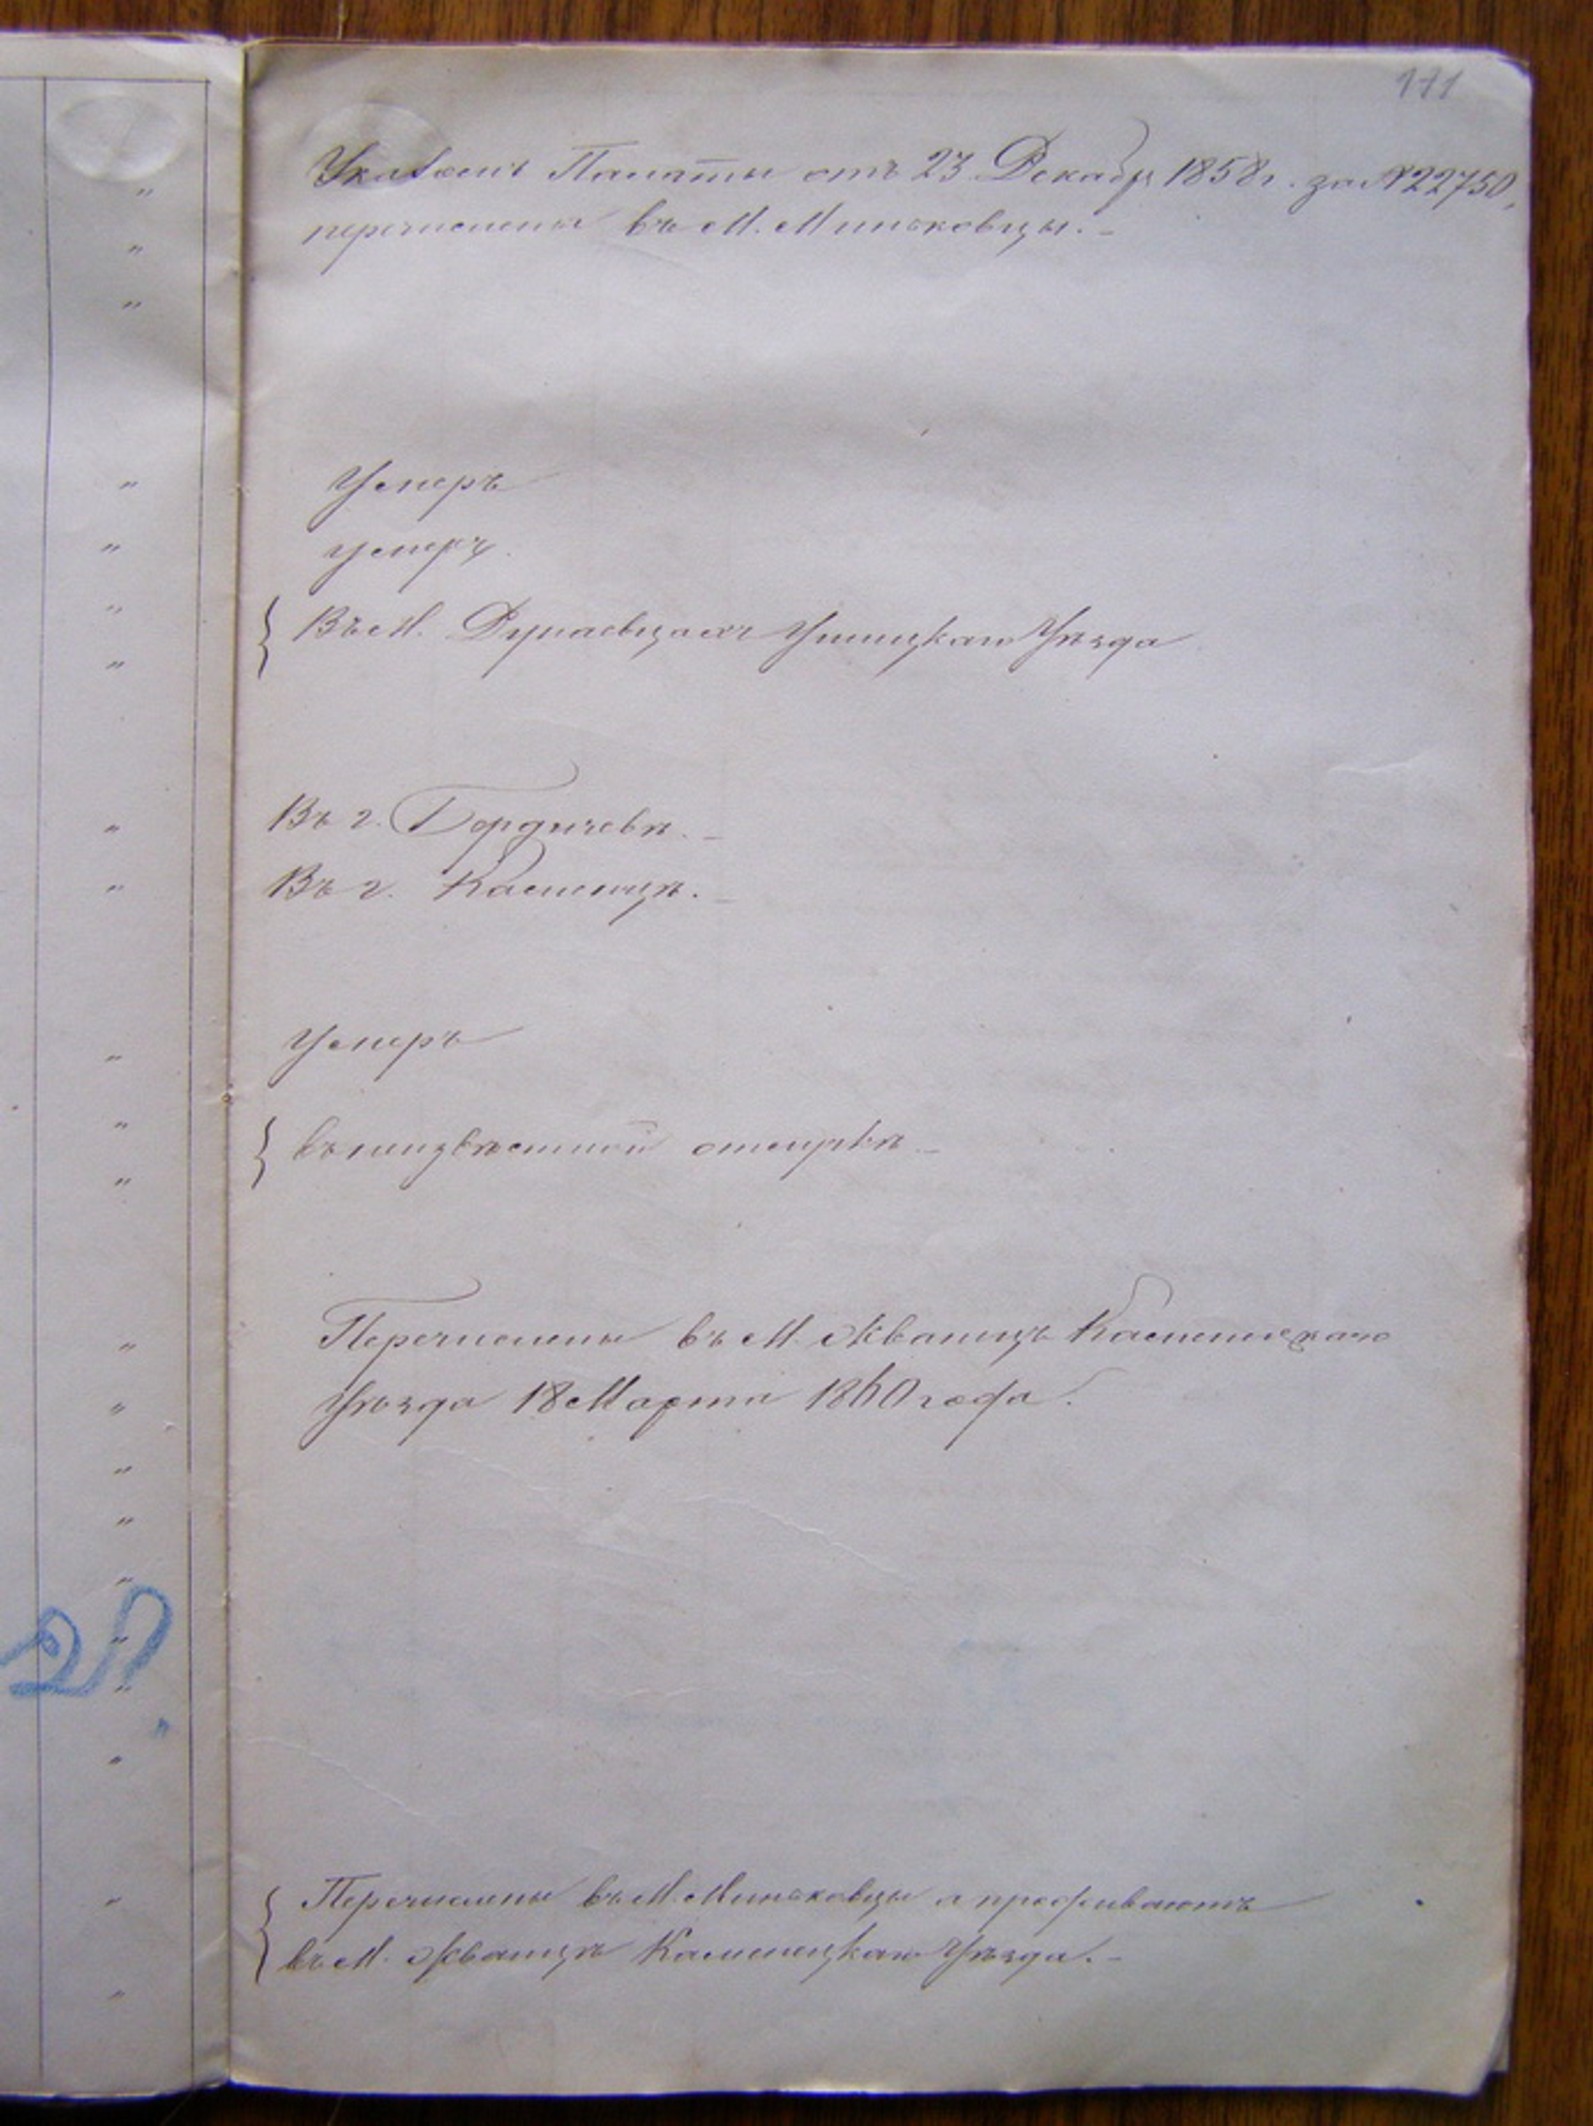 171
Указомъ Палаты отъ 23 Декабр 1858 г. за № 22750,
перечислены въ М. Миньковцы.-
Умеръ
умеръ.
Въ М. Дунаевцахъ Ушицкаго Уѣзда
Въ г. Бердичевѣ.-
Въ г. Каменцѣ.-
Умеръ
въ неизвѣстной отлучкѣ-
Перечислены въ М. Жванецъ Каменецкаго
Уѣзда 18 Марта 1860 года.
Перечислены въ М. Миньковцы а проживаютъ
въ М. Жванцѣ Каменецкаго Уѣзда.-